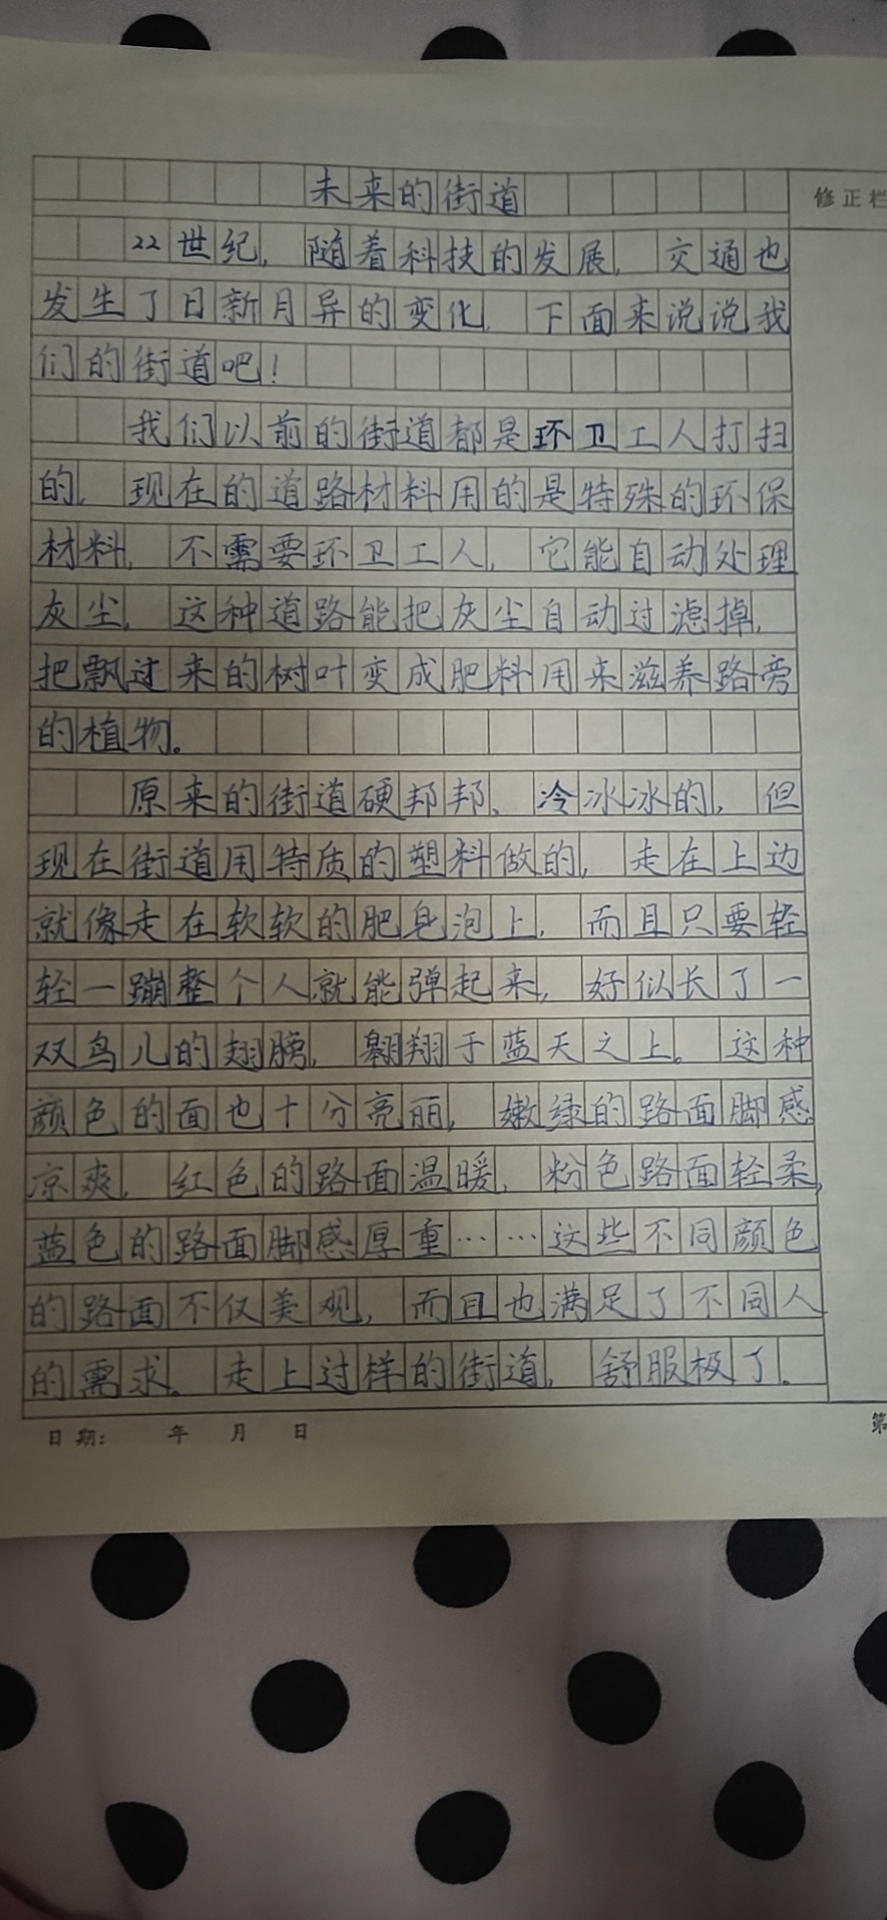 未来的街道
修正栏
22世纪，随着科技的发展，交通也
发生了日新月异的变化，下面来说说我
们的街道吧！
我们以前的街道都是环卫工人打扫
的，现在的道路材料用的是特殊的环保
材料，不需要环卫工人，它能自动处理
灰尘，这种道路能把灰尘自动过滤掉，
把飘过来的树叶变成肥料用来滋养路旁
的植物。
原来的街道硬邦邦、冷冰冰的，但
现在街道用特质的塑料做的，走在上边
就像走在软软的肥皂泡上，而且只要轻
轻一蹦整个人就能弹起来，好似长了一
双鸟儿的翅膀，翱翔于蓝天之上。这种
颜色的面也十分亮丽，嫩绿的路面脚感
凉爽，红色的路面温暖，粉色路面轻柔，
蓝色的路面脚感厚重……这些不同颜色
的路面不仅美观，而且也满足了不同人
的需求。走上过样的街道，舒服极了。
日期： 年 月 日
第